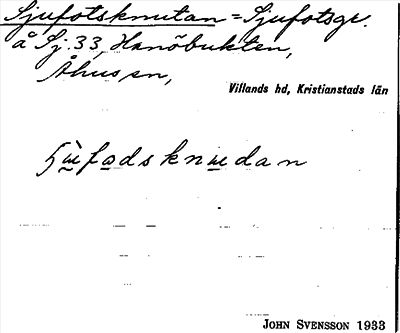 Sjufotsknutan = Sjufotsgr.
å Sj. 33, Hanöbukten,
Åhus sn,
Villands hd, Kristianstads län
ɧù̲fo̲dsknu̲dan
JOHN SVENSSON 1933